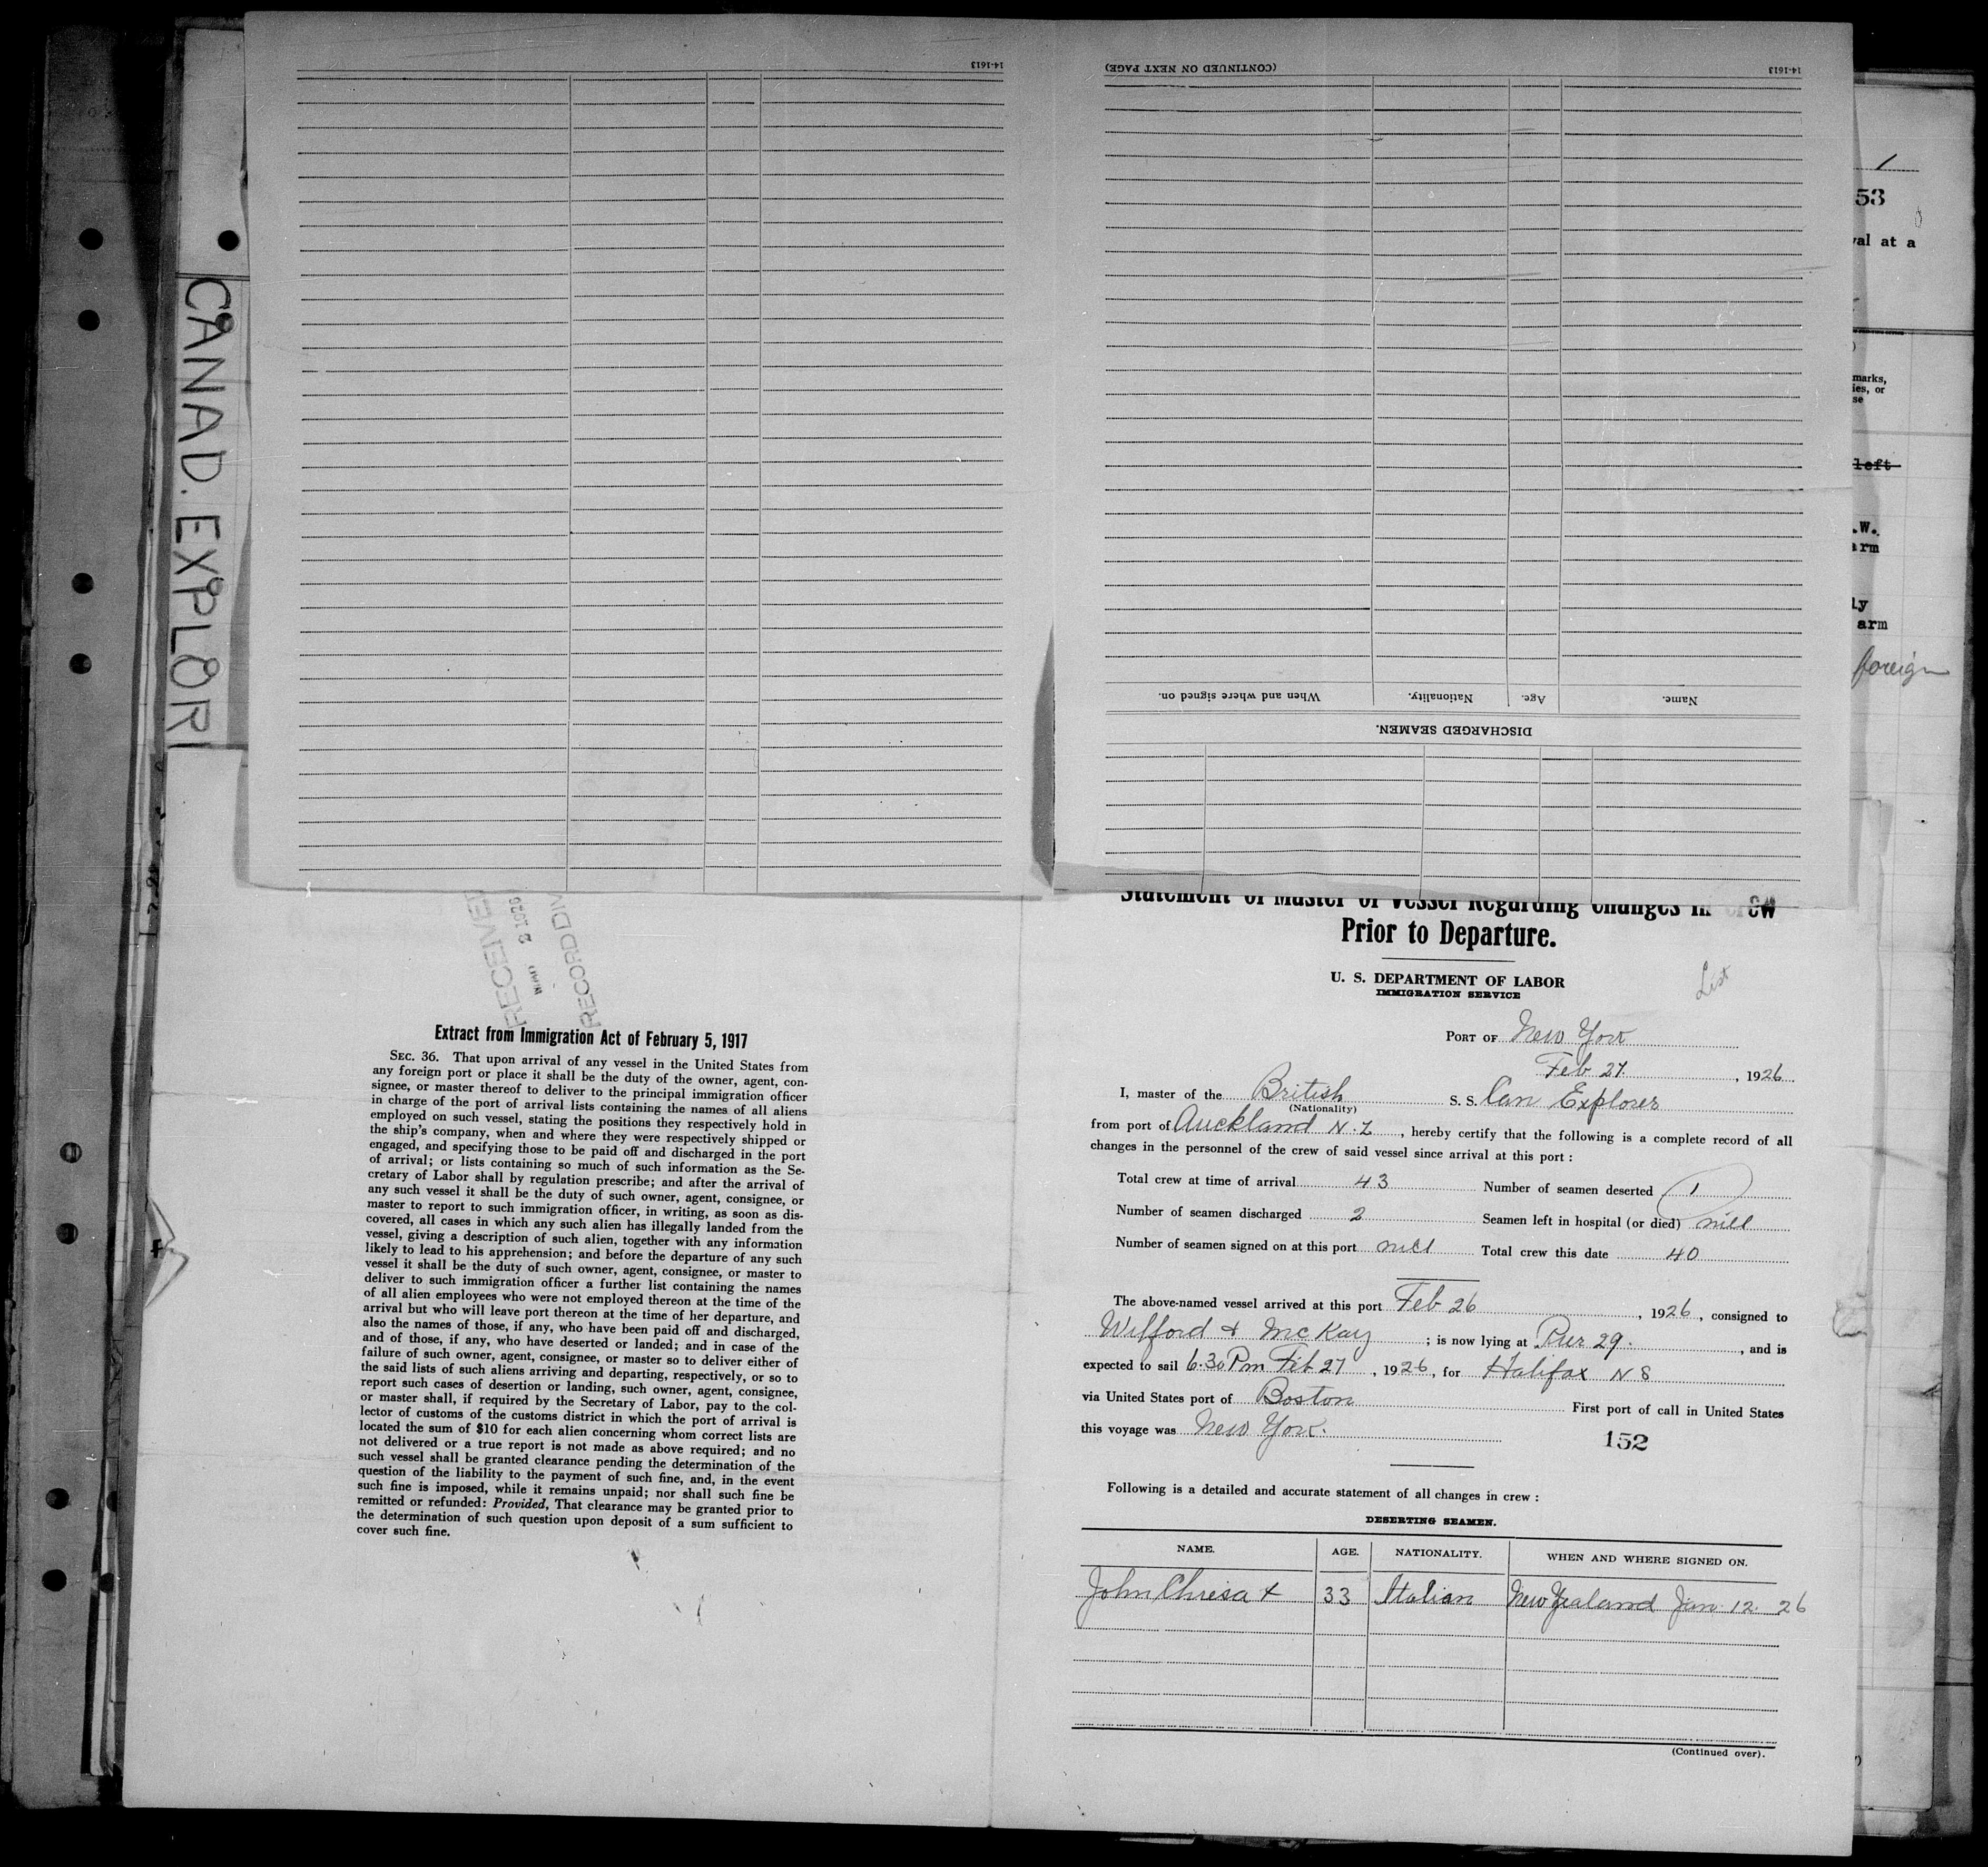 14-1613
(CONTINUED ON NEXT PAGE)
14-1613
When and where signed on.
Nationality.
Age.
Name.
DISCHARGED SEAMEN.
CANAD. EXPLOR
1
53
val at a
marks,
ies, or
se
left
.W.
arm
ly
arm
foreign
RECEIVED
2 1926
RECORD DIV
Extract from Immigration Act of February 5, 1917
SEC. 36. That upon arrival of any vessel in the United States from
any foreign port or place it shall be the duty of the owner, agent, con-
signee, or master thereof to deliver to the principal immigration officer
in charge of the port of arrival lists containing the names of all aliens
employed on such vessel, stating the positions they respectively hold in
the ship's company, when and where they were respectively shipped or
engaged, and specifying those to be paid off and discharged in the port
of arrival; or lists containing so much of such information as the Se-
cretary of Labor shall by regulation prescribe; and after the arrival of
any such vessel it shall be the duty of such owner, agent, consignee, or
master to report to such immigration officer, in writing, as soon as dis-
covered, all cases in which any such alien has illegally landed from the
vessel, giving a description of such alien, together with any information
likely to lead to his apprehension; and before the departure of any such
vessel it shall be the duty of such owner, agent, consignee, or master to
deliver to such immigration officer a further list containing the names
of all alien employees who were not employed thereon at the time of the
arrival but who will leave port thereon at the time of her departure, and
also the names of those, if any, who have been paid off and discharged,
and of those, if any, who have deserted or landed; and in case of the
failure of such owner, agent, consignee, or master so to deliver either of
the said lists of such aliens arriving and departing, respectively, or so to
report such cases of desertion or landing, such owner, agent, consignee,
or master shall, if required by the Secretary of Labor, pay to the col-
lector of customs of the customs district in which the port of arrival is
located the sum of $10 for each alien concerning whom correct lists are
not delivered or a true report is not made as above required; and no
such vessel shall be granted clearance pending the determination of the
question of the liability to the payment of such fine, and, in the event
such fine is imposed, while it remains unpaid; nor shall such fine be
remitted or refunded: Provided, That clearance may be granted prior to
the determination of such question upon deposit of a sum sufficient to
cover such fine.
Statement of Master of Vessel Regarding Changes in Crew
Prior to Departure.
U. S. DEPARTMENT OF LABOR
IMMIGRATION SERVICE
List
PORT OF New York
Feb 27, 1926
I, master of the British S. S. Can Explorer
(Nationality)
from port of Auckland N.Z, hereby certify that the following is a complete record of all
changes in the personnel of the crew of said vessel since arrival at this port:
Total crew at time of arrival 43 Number of seamen deserted 1
Number of seamen discharged 2 Seamen left in hospital (or died) nill
Number of seamen signed on at this port nill Total crew this date 40
The above-named vessel arrived at this port Feb 26, 1926, consigned to
Wilford & McKay; is now lying at Pier 29., and is
expected to sail 6.30 Pm Feb 27, 1926, for Halifax N S
via United States port of Boston First port of call in United States
this voyage was New York.
152
Following is a detailed and accurate statement of all changes in crew:
DESERTING SEAMEN.
NAME. AGE. NATIONALITY. WHEN AND WHERE SIGNED ON.
John Chresa + 33 Italian New Zealand Jan. 12. 26
(Continued over).